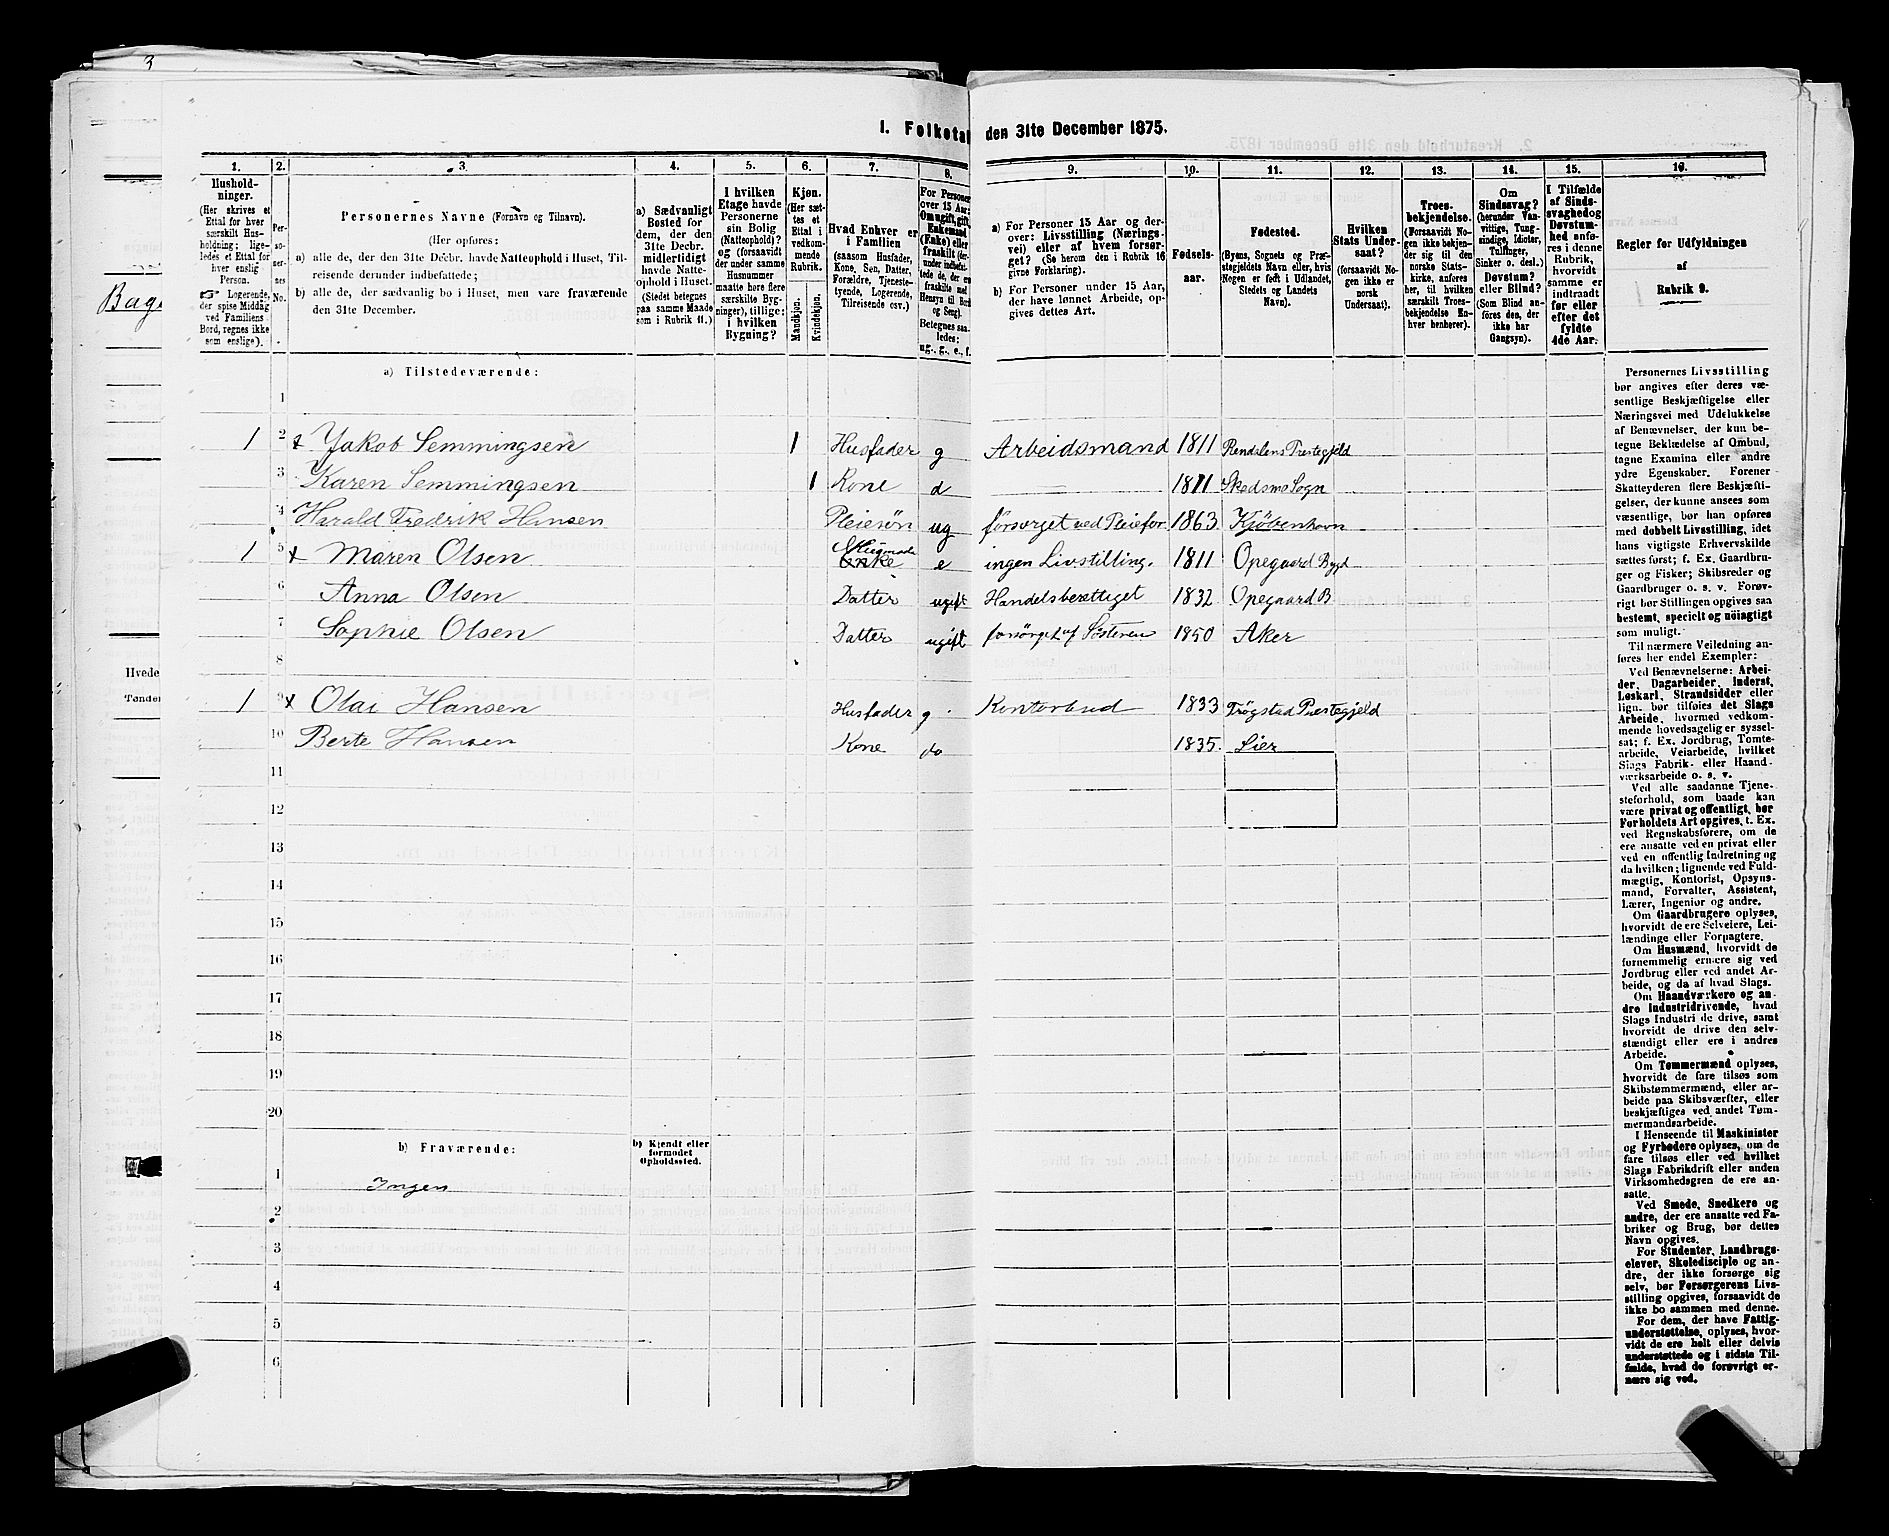 3
I. Folketal den 31te December 1875.
1. 2. 3. 4. 5. 6. 7. 8. 9. 10. 11. 12. 13. 14. 15. 16.
Hushold-
ninger.
(Her skrives et
Ettal for hver
særskilt Hus-
holdning; lige-
ledes et Ettal for
hver enslig
Person.
☞ Logerende,
der spise Middag
ved Familiens
Bord, regnes ikke
som enslige).
Per-
so-
ner-
nes
No.
Personernes Navne (Fornavn og Tilnavn).
(Her opføres:
a) alle de, der den 31te Decbr. havde Natteophold i Huset, Til-
reisende derunder indbefattede;
b) alle de, der sædvanlig bo i Huset, men vare fraværende
den 31te December.
a) Sædvanligt
Bosted for
dem, der den
31te Decbr.
midlertidigt
havde Natte-
ophold i Huset.
(Stedet betegnes
paa samme Maade
som i Rubrik 11.)
I hvilken
Etage havde
Personerne
sin Bolig
(Natteophold)?
og (forsaavidt
der under samme
Husnummer
maatte høre flere
særskilte Byg-
ninger), tillige:
i hvilken
Bygning?
Kjøn.
(Her sæt-
tes et
Ettal i
vedkom-
mende
Rubrik.
Mandkjøn.
Kvindekjøn.
Hvad Enhver er
i Familien
(saasom Husfader,
Kone, Søn, Datter,
Forældre, Tjeneste-
tyende, Logerende,
Tilreisende osv.)
For Personer
over 15 Aar:
Om ugift, gift,
Enkemand
(Enke) eller
fraskilt
Hensyn til Bord
og Seng).
Betegnes saa-
ledes:
ug., g., e., f.
a) For Personer 15 Aar og der-
over: Livsstilling (Nærings-
vei) eller af hvem forsør-
get? (Se herom den i Rubrik 16
givne Forklaring).
b) For Personer under 15 Aar,
der have lønnet Arbeide, op-
gives dettes Art.
Fødsels-
aar.
Fødested.
(Byens, Sognets og Præ-
stegjeldets Navn eller, hvis
Nogen er født i Udlandet,
Stedets og Landets
Navn).
Hvilken
Stats Under-
saat?
(forsaavidt No-
gen ikke er
norsk
Undersaat).
Troes-
bekjendelse.
(Forsaavidt No-
gen ikke bekjen-
der sig til den
norske Stats-
kirke, anføres
her, til hvilken
særskilt Troes-
bekjendelse En-
hver henhører).
Om
Sindssvag?
(herunder Van-
vittige, Tung-
sindige, Idioter,
Tullinger,
Sinker o. desl.)
Døvstum?
eller Blind?
(Som Blind an-
føres den, der
ikke har
Gangsyn).
I Tilfælde
af Sinds-
svaghed og
Døvstum-
hed anfø-
res i denne
Rubrik,
hvorvidt
samme er
indtraadt
før eller
efter det
fyldte
4de Aar.
Regler for Udfyldningen
af
Rubrik 9.
a) Tilstedeværende:
1
1 2 x Jakob Semmingsen 1 Husfader g Arbeidsmand 1811 Rendalens Prestegjeld
3 Karen Semmingsen 1 Kone d 1811 Skedsmo Sogn
4 Harald Fredrik Hansen Pleiesøn ug forsørget ved Pleiefor. 1863 Kjøbenhavn
1 5 x Maren Olsen Enke e ingen Livstilling. 1811 Opegaard Bygd
6 Anna Olsen Datter ugift Handelsberettiget 1832 Opegaard B
7 Sophie Olsen Datter ugift forsørget af Søsteren 1850 Aker
8
1 9 x Olai Hansen Husfader g. Kontorbud 1833 Trögstad Prestegjeld
10 Berte Hansen Kone do 1835. Lier
11
12
13
14
15
16
17
18
19
20
b) Fraværende:
b) Kjendt eller
formodet
Opholdssted.
1 Ingen
2
3
4
5
6
Personernes Livsstilling
bør angives efter deres væ-
sentlige Beskjæftigelse eller
Næringsvei med Udelukkelse
af Benævnelser, der kun be-
tegne Beklædelse af Ombud,
tagne Examina eller andre
ydre Egenskaber. Forener
Skatteyderen flere Beskjæfti-
gelser, der kunne ansees som
væsentlige, bør han opføres
med dobbelt Livsstilling, idet
hans vigtigste Erhvervskilde
sættes først; f. Ex. Gaardbru-
ger og Fisker; Skibsreder og
Gaardbruger o. s. v. Forøv-
rigt bør Stillingen opgives saa
bestemt, specielt og nöiagtigt
som muligt.
Til nærmere Veiledning an-
føres her endel Exempler:
Ved Benævnelserne: Arbei-
der, Dagarbeider, Inderst,
Løskarl, Strandsidder eller
lign. bør tilføies det Slags
Arbeide, hvormed vedkom-
mende hovedsagelig er syssel-
sat; f. Ex. Jordbrug, Tomte-
arbeide, Veiarbeide, hvilket
Slags Fabrik- eller Haand-
værksarbeide o. s. v.
Ved alle saadanne Tjene-
steforhold, som baade kan
være privat og offentligt, bør
Forholdets Art opgives, t. Ex.
ved Regnskabsførere, om de
ere ansatte ved en privat eller
ved en offentlig Indretning og
da hvilken; lignende ved Fuld-
mægtig, Kontorist, Opsyns-
mand, Forvalter, Assistent,
Lærer, Ingeniør og andre.
Om Gaardbrugere oplyses,
hvorvidt de ere Selveiere, Lei-
lændinge eller Forpagtere.
Om Husmænd, hvorvidt de
fornemmelig ernære sig ved
Jordbrug eller ved andet Ar-
beide, og da af hvad Slags.
Om Haandværkere og an-
dre Industridrivende, hvad
Slags Industri de drive, samt
hvorvidt de drive den selv-
stændigt eller ere i andres
Arbeide.
Om Tømmermænd oplyses,
hvorvidt de fare tilsøs som
Skibstømmermænd, eller ar-
beide paa Skibsværfter, eller
beskjæftiges ved andet Tøm-
mermandsarbeide.
I Henseende til Maskinister
og Fyrbødere oplyses, om de
fare tilsøs eller ved hvilket
Slags Fabrikdrift eller anden
Virksomhedsgren de ere an-
satte.
Ved Smede, Snedkere og
andre, der ere ansatte ved Fa-
briker og Brug, bør dettes
Navn opgives.
For Studenter, Landbrugs-
elever, Skoledisciple og an-
dre, der ikke forsørge sig
selv, bør Forsørgerens Livs-
stilling opgives, forsaavidt de
ikke bo sammen med denne.
For dem, der have Fattig-
understøttelse, oplyses, hvor-
vidt de ere helt eller delvis
understøttede og i sidste Til-
fælde, hvad de forøvrigt er-
nære sig ved.
Hvede
Tønder